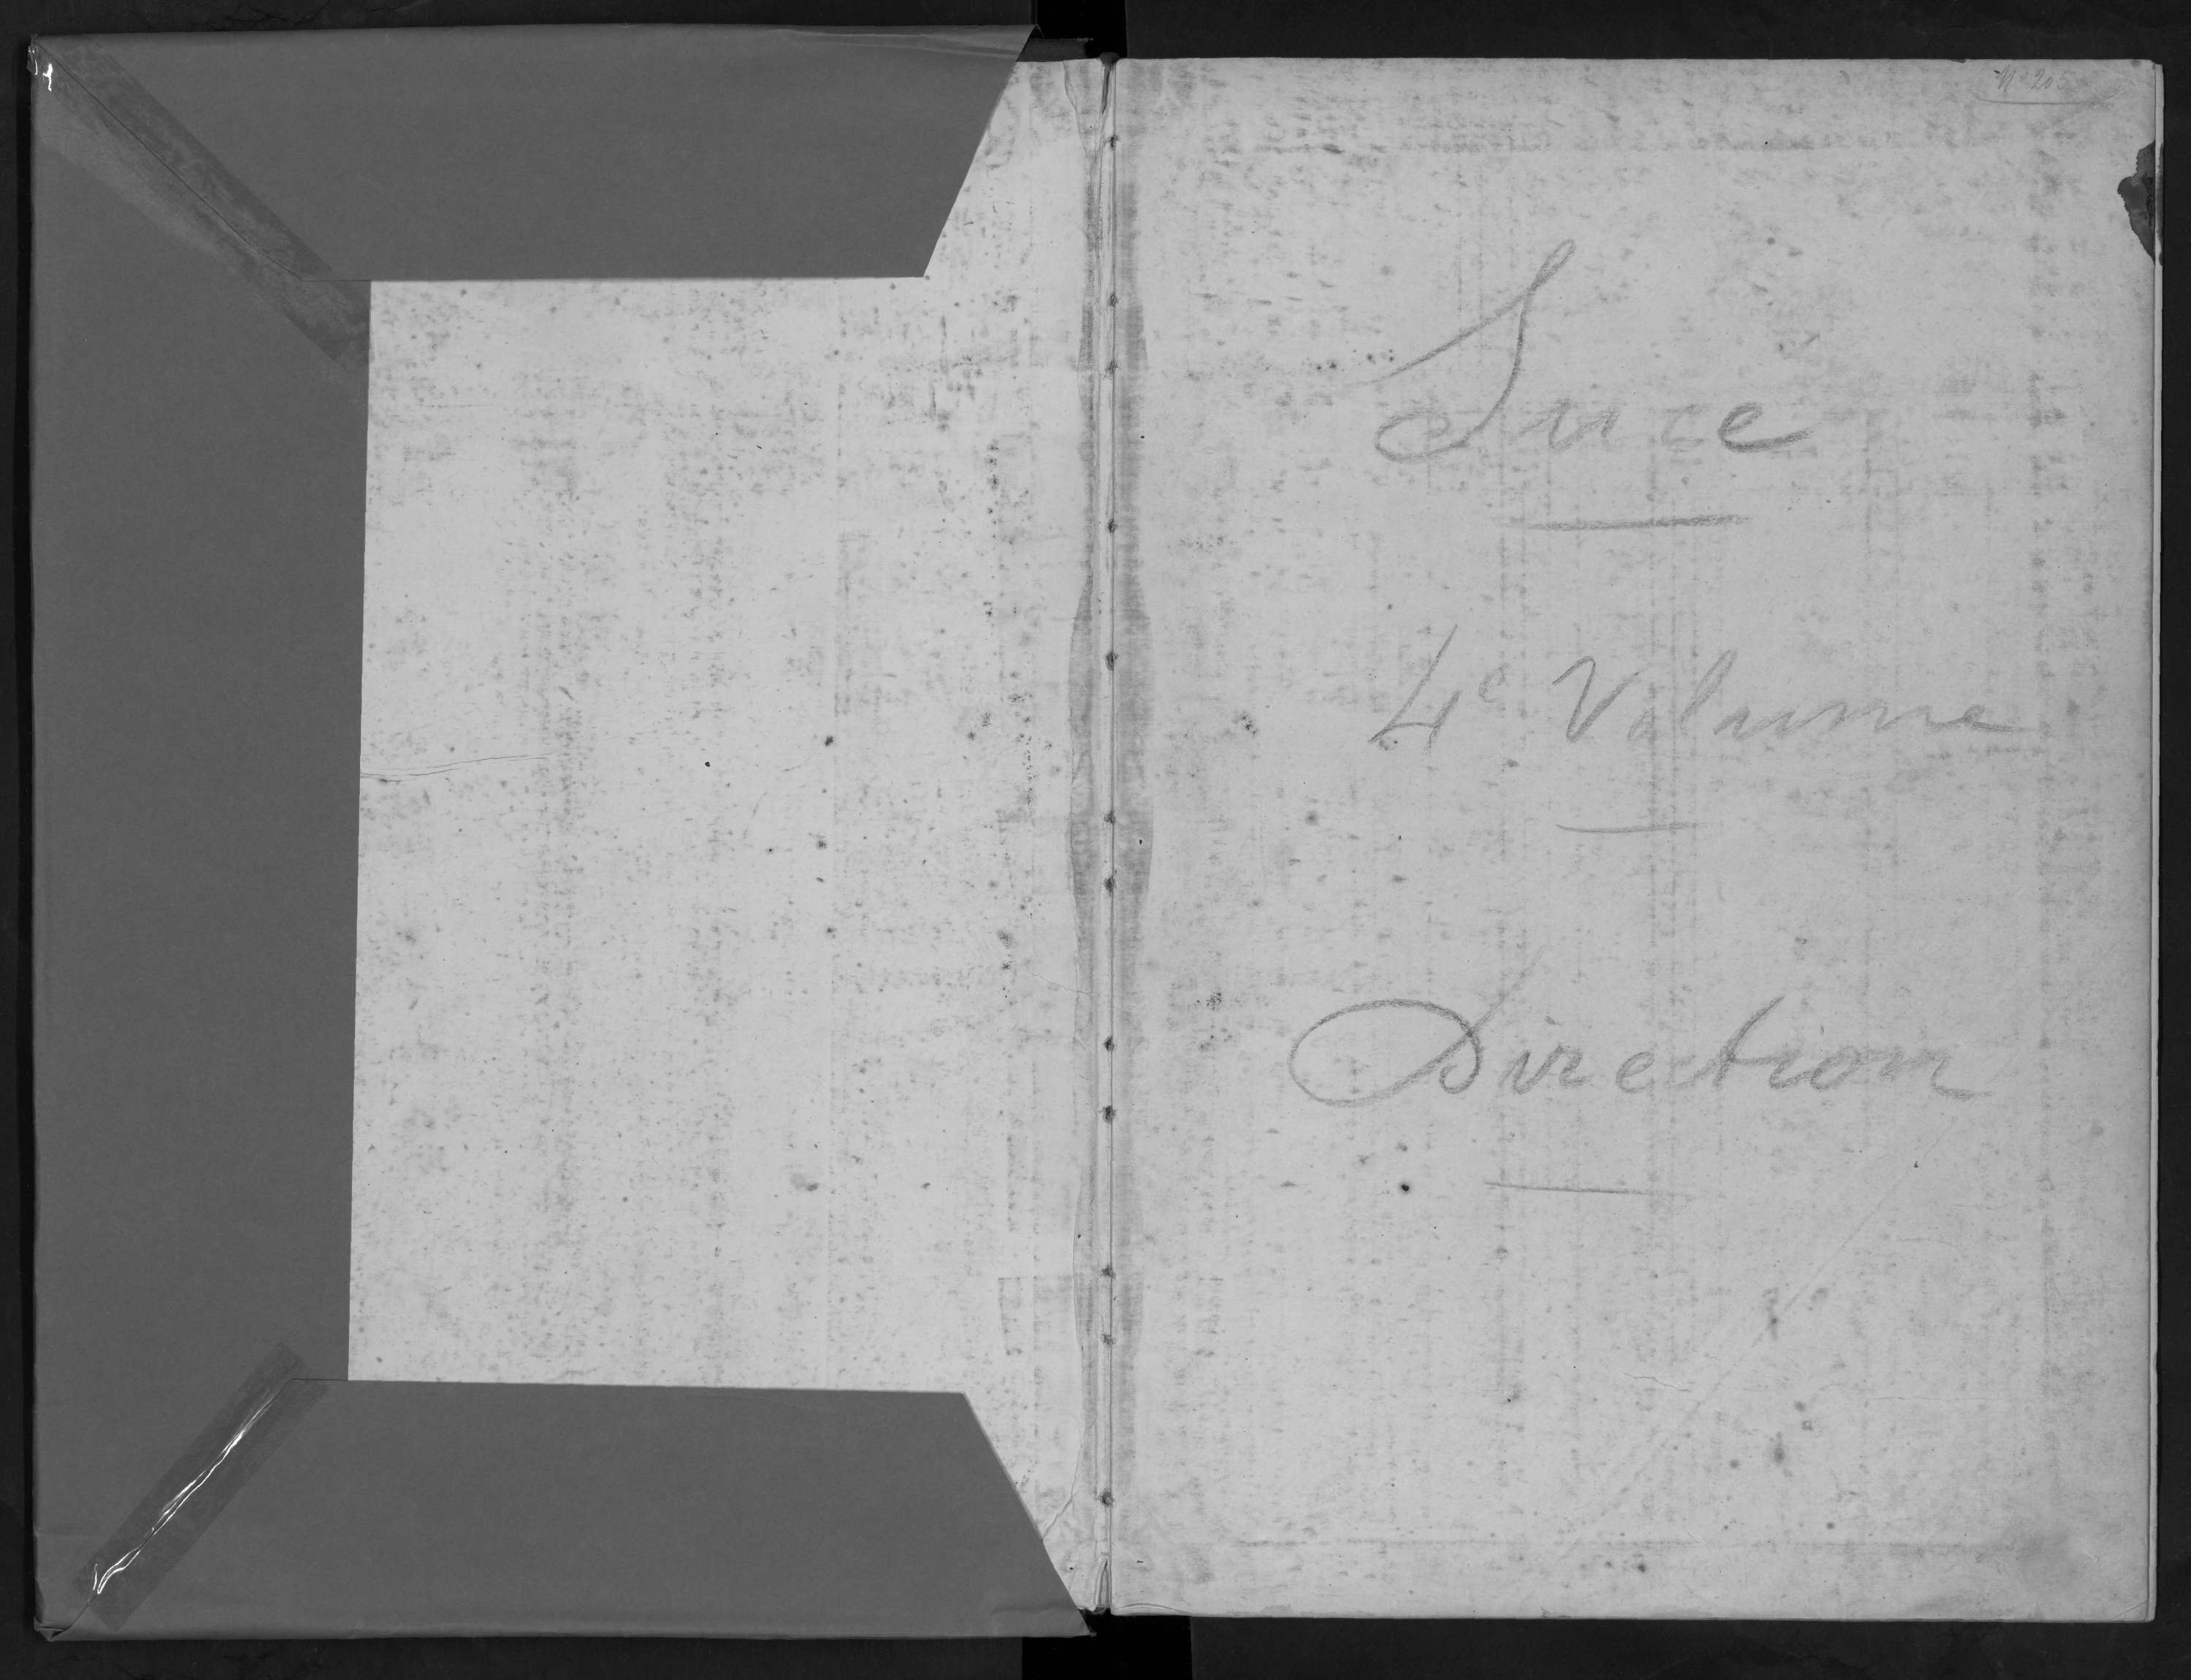 N° 205
Suce
4e Volume
Direction